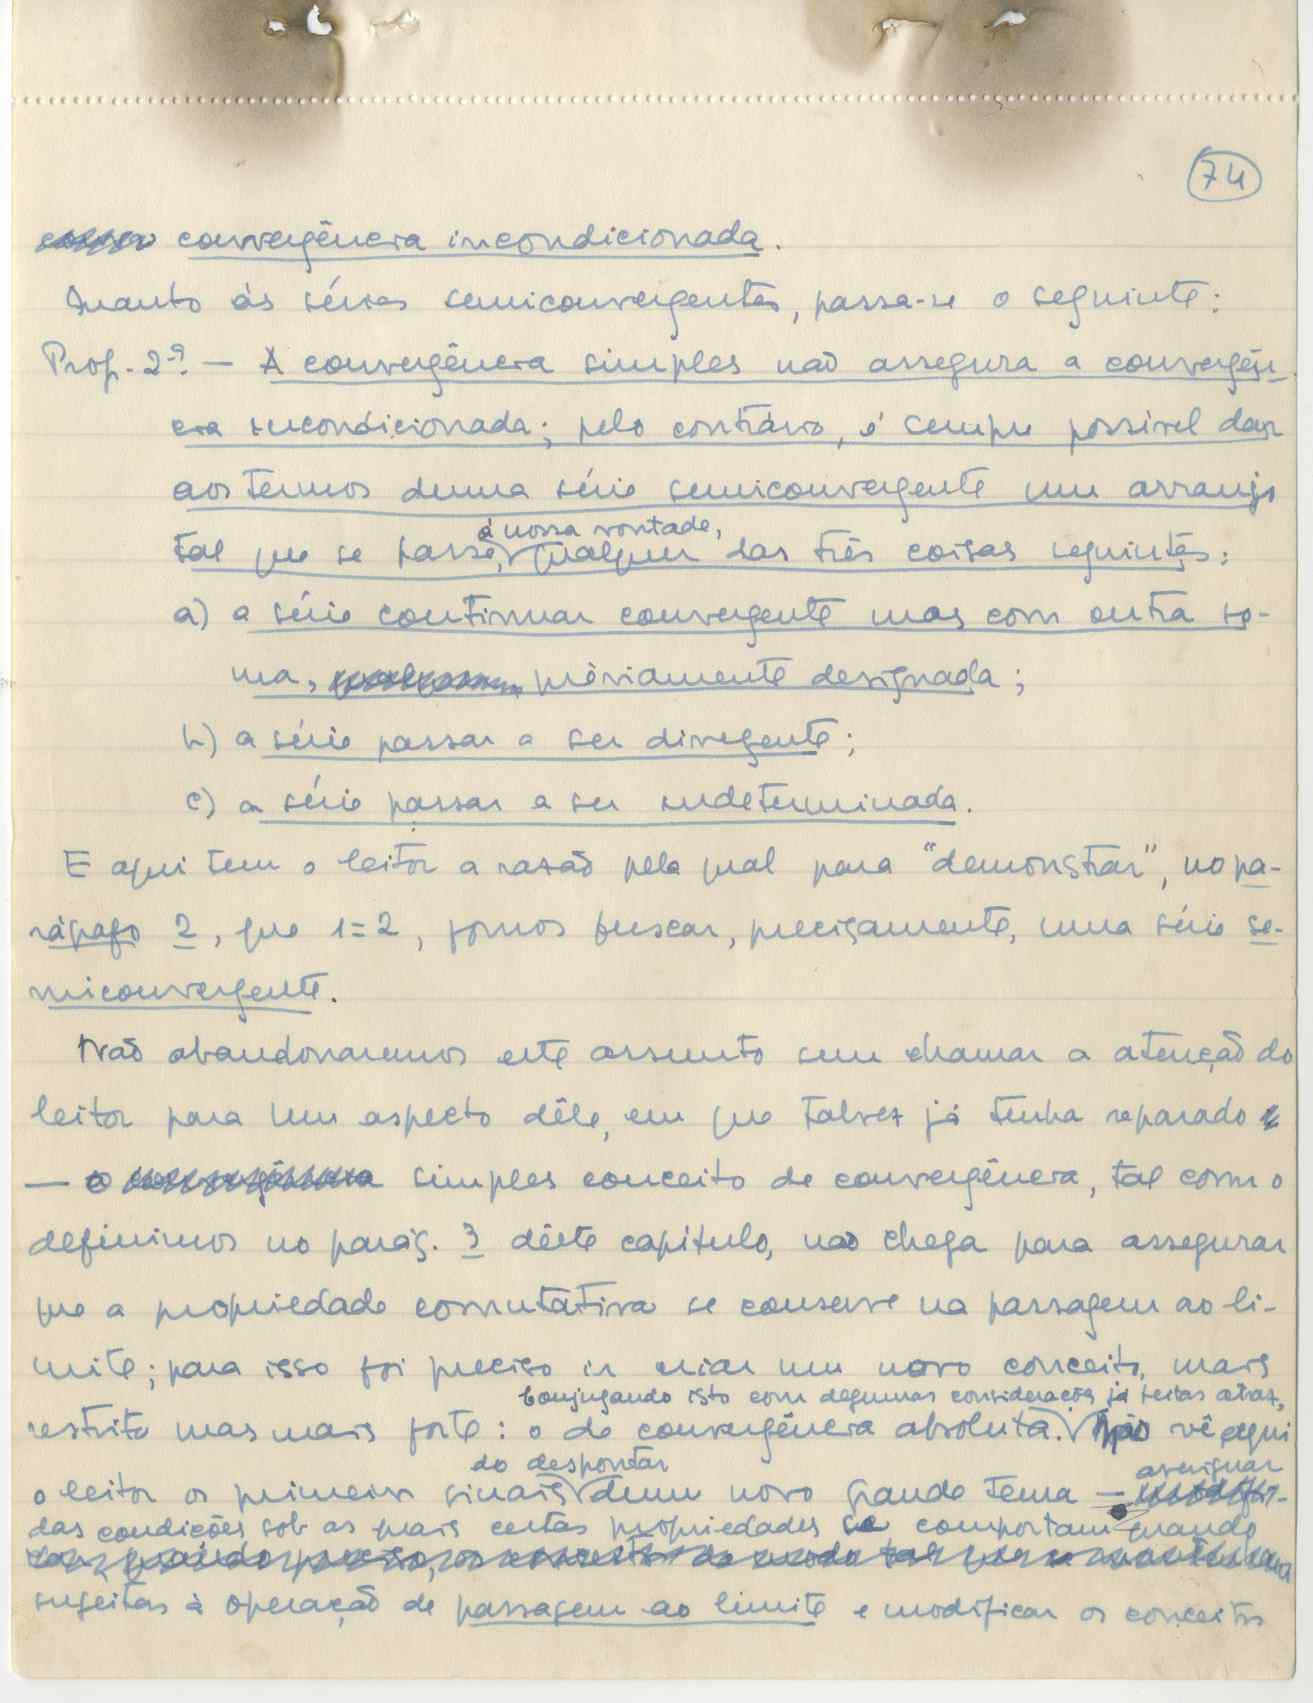 74
convergência incondicionada.
Quanto às séries semiconvergentes, passa-se o seguinte:
Prop. 2ª. — A convergência simples não assegura a convergên-
cia incondicionada; pelo contrário, é sempre possível dar
aos termos duma série semiconvergente um arranjo
à nossa vontade,
tal que se passe, qualquer das três coisas seguintes:
a) a série continuar convergente mas com outra so-
ma, préviamente designada;
b) a série passar a ser divergente;
c) a série passar a ser indeterminada.
E aqui tem o leitor a razão pela qual para "demonstrar", no pa-
rágrafo 2, que 1=2, fomos buscar, precisamente, uma série se-
miconvergente.
Não abandonaremos este assunto sem chamar a atenção do
leitor para um aspecto dêle, em que talvez já tenha reparado
— o simples conceito de convergência, tal como o
definimos no parág. 3 dêste capítulo, não chega para assegurar
que a propriedade comutativa se conserve na passagem ao li-
mite; para isso foi preciso ir criar um novo conceito, mais
Conjugando isto com algumas considerações já feitas atraz,
restrito mas mais forte: o de convergência absoluta. Não vê aqui
do despontar
averiguar
o leitor os primeiros sinais dum novo grande tema —
das condições sob as quais certas propriedades se comportam quando
sugeitas à operação de passagem ao limite e modificar os conceitos